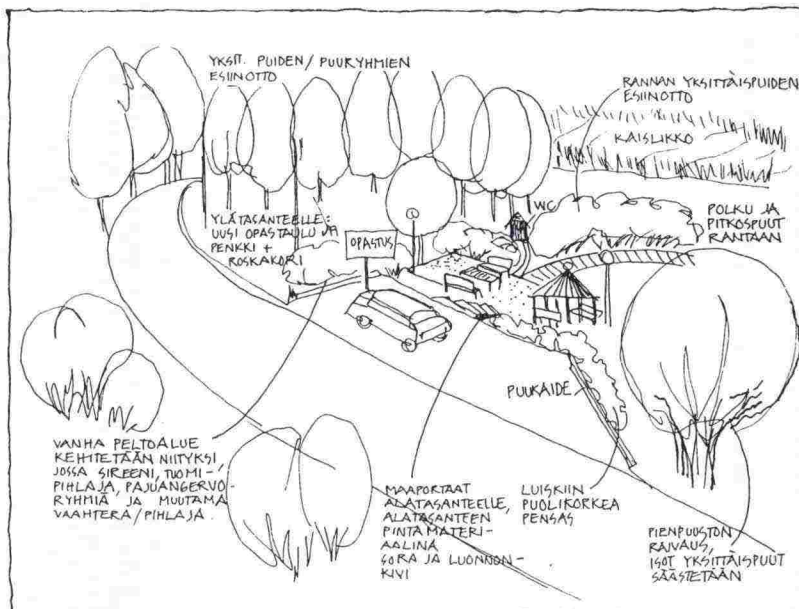 YKSIT. PUIDEN/PUURYHMIEN
ESIINOTTO
RANNAN YKSITTÄISPUIDEN
ESIINOTTO
KAISLIKKO
WC
POLKU JA
PITKOSPUUT
RANTAAN
YLÄTASANTEELLE:
UUSI OPASTAULU JA
PENKKI +
ROSKAKORI
OPASTUS
PUUKAIDE
VANHA PELTOALUE
KEHITETÄÄN NIITYKSI
JOSSA SIREENI, TUOMI-
PIHLAJA, PAJUANGERVO-
RYHMIÄ JA MUUTAMA
VAAHTERA/PIHLAJA.
MAAPORTAAT
ALATASANTEELLE,
ALATASANTEEN
PINTAMATERI-
AALINA
SORA JA LUONNON-
KIVI
LUISKIIN
PUOLIKORKEA
PENSAS
PIENPUUSTON
RAIVAUS,
ISOT YKSITTÄISPUUT
SÄÄSTETÄÄN